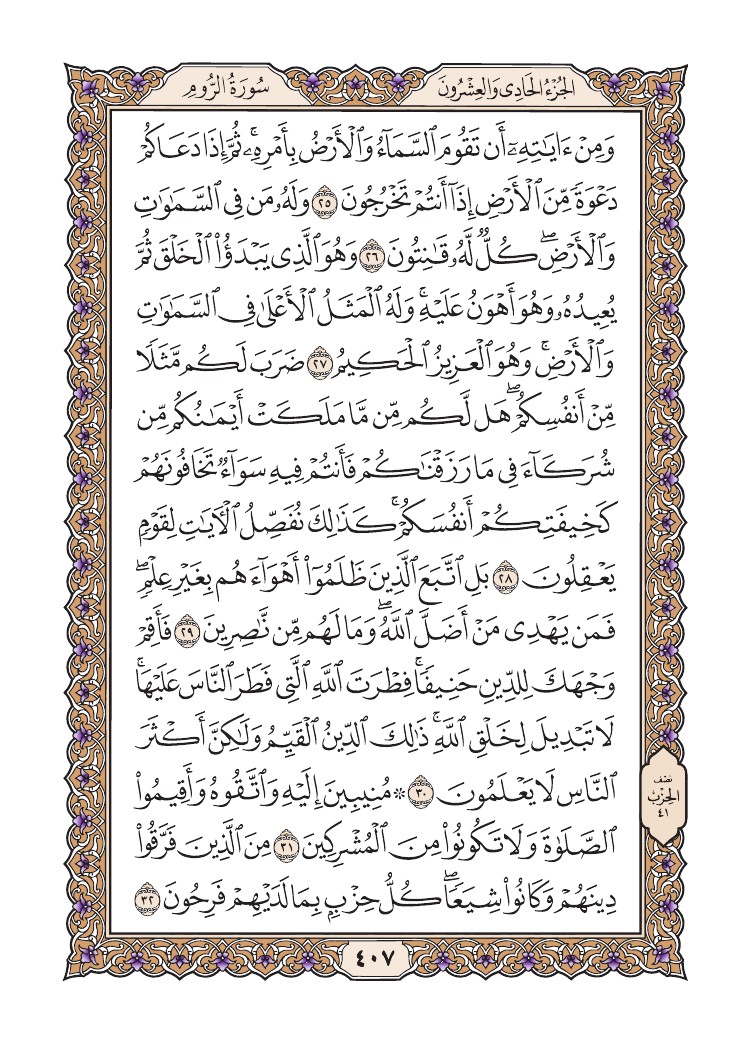 الجُزْءُ الحَادِى وَالعِشْرُونَ
سُورَةُ الرُّومِ
وَمِنْ ءَايَـٰتِهِۦٓ أَن تَقُومَ ٱلسَّمَآءُ وَٱلْأَرْضُ بِأَمْرِهِۦ ۚ ثُمَّ إِذَا دَعَاكُمْ
دَعْوَةً مِّنَ ٱلْأَرْضِ إِذَآ أَنتُمْ تَخْرُجُونَ ٢٥ وَلَهُۥ مَن فِى ٱلسَّمَـٰوَٰتِ
وَٱلْأَرْضِ ۖ كُلٌّ لَّهُۥ قَـٰنِتُونَ ٢٦ وَهُوَ ٱلَّذِى يَبْدَؤُا۟ ٱلْخَلْقَ ثُمَّ
يُعِيدُهُۥ وَهُوَ أَهْوَنُ عَلَيْهِ ۚ وَلَهُ ٱلْمَثَلُ ٱلْأَعْلَىٰ فِى ٱلسَّمَـٰوَٰتِ
وَٱلْأَرْضِ ۚ وَهُوَ ٱلْعَزِيزُ ٱلْحَكِيمُ ٢٧ ضَرَبَ لَكُم مَّثَلًا
مِّنْ أَنفُسِكُمْ ۖ هَل لَّكُم مِّن مَّا مَلَكَتْ أَيْمَـٰنُكُم مِّن
شُرَكَآءَ فِى مَا رَزَقْنَـٰكُمْ فَأَنتُمْ فِيهِ سَوَآءٌ تَخَافُونَهُمْ
كَخِيفَتِكُمْ أَنفُسَكُمْ ۚ كَذَٰلِكَ نُفَصِّلُ ٱلْـَٔايَـٰتِ لِقَوْمٍ
يَعْقِلُونَ ٢٨ بَلِ ٱتَّبَعَ ٱلَّذِينَ ظَلَمُوٓا۟ أَهْوَآءَهُم بِغَيْرِ عِلْمٍ ۖ
فَمَن يَهْدِى مَنْ أَضَلَّ ٱللَّهُ ۖ وَمَا لَهُم مِّن نَّـٰصِرِينَ ٢٩ فَأَقِمْ
وَجْهَكَ لِلدِّينِ حَنِيفًا ۚ فِطْرَتَ ٱللَّهِ ٱلَّتِى فَطَرَ ٱلنَّاسَ عَلَيْهَا ۚ
لَا تَبْدِيلَ لِخَلْقِ ٱللَّهِ ۚ ذَٰلِكَ ٱلدِّينُ ٱلْقَيِّمُ وَلَـٰكِنَّ أَكْثَرَ
ٱلنَّاسِ لَا يَعْلَمُونَ ٣٠ ۞ مُنِيبِينَ إِلَيْهِ وَٱتَّقُوهُ وَأَقِيمُوا۟
ٱلصَّلَوٰةَ وَلَا تَكُونُوا۟ مِنَ ٱلْمُشْرِكِينَ ٣١ مِنَ ٱلَّذِينَ فَرَّقُوا۟
دِينَهُمْ وَكَانُوا۟ شِيَعًا ۖ كُلُّ حِزْبٍۭ بِمَا لَدَيْهِمْ فَرِحُونَ ٣٢
نصف
الحزب
٤١
٤٠٧